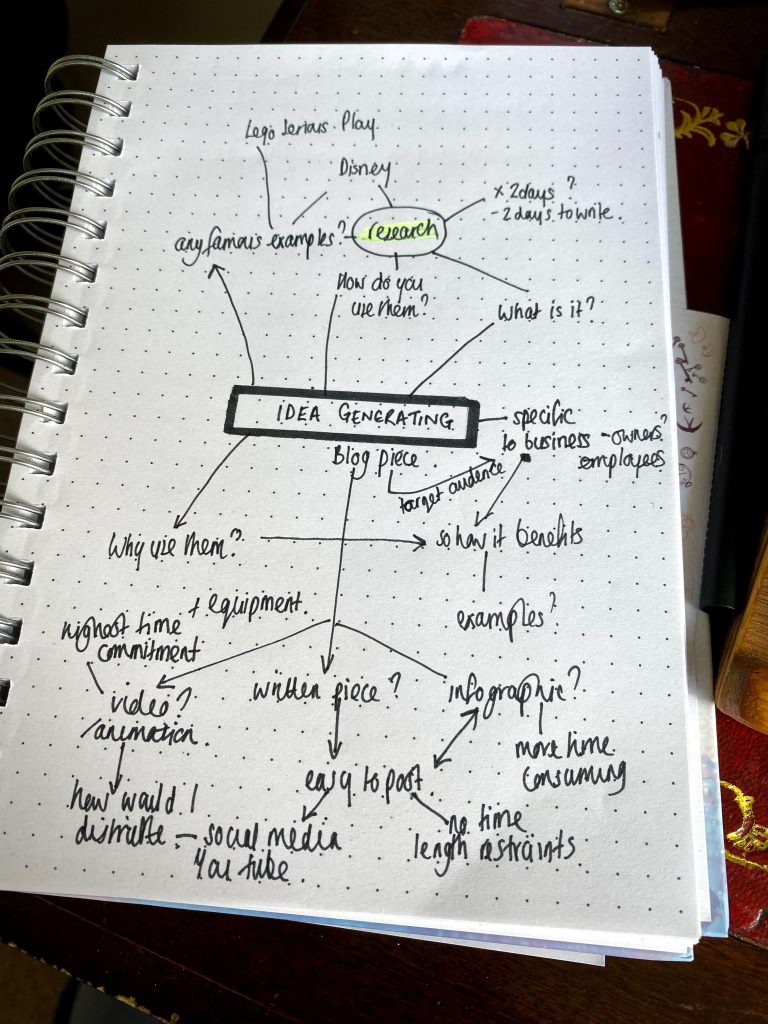 Lego Serious Play
Disney
x 2days ?
- 2 days to write.
any famous examples?
research
How do you
use them?
What is it?
IDEA GENERATING
Blog piece
specific
to business - owners?
employees
target audence
Why use them?
so how it benefits
examples?
+ equipment
highest time
commitment
video?
/animation.
written piece ?
infographic?
more time
consuming
easy to post
how would I
distribute - social media
You tube
no time
length restraints